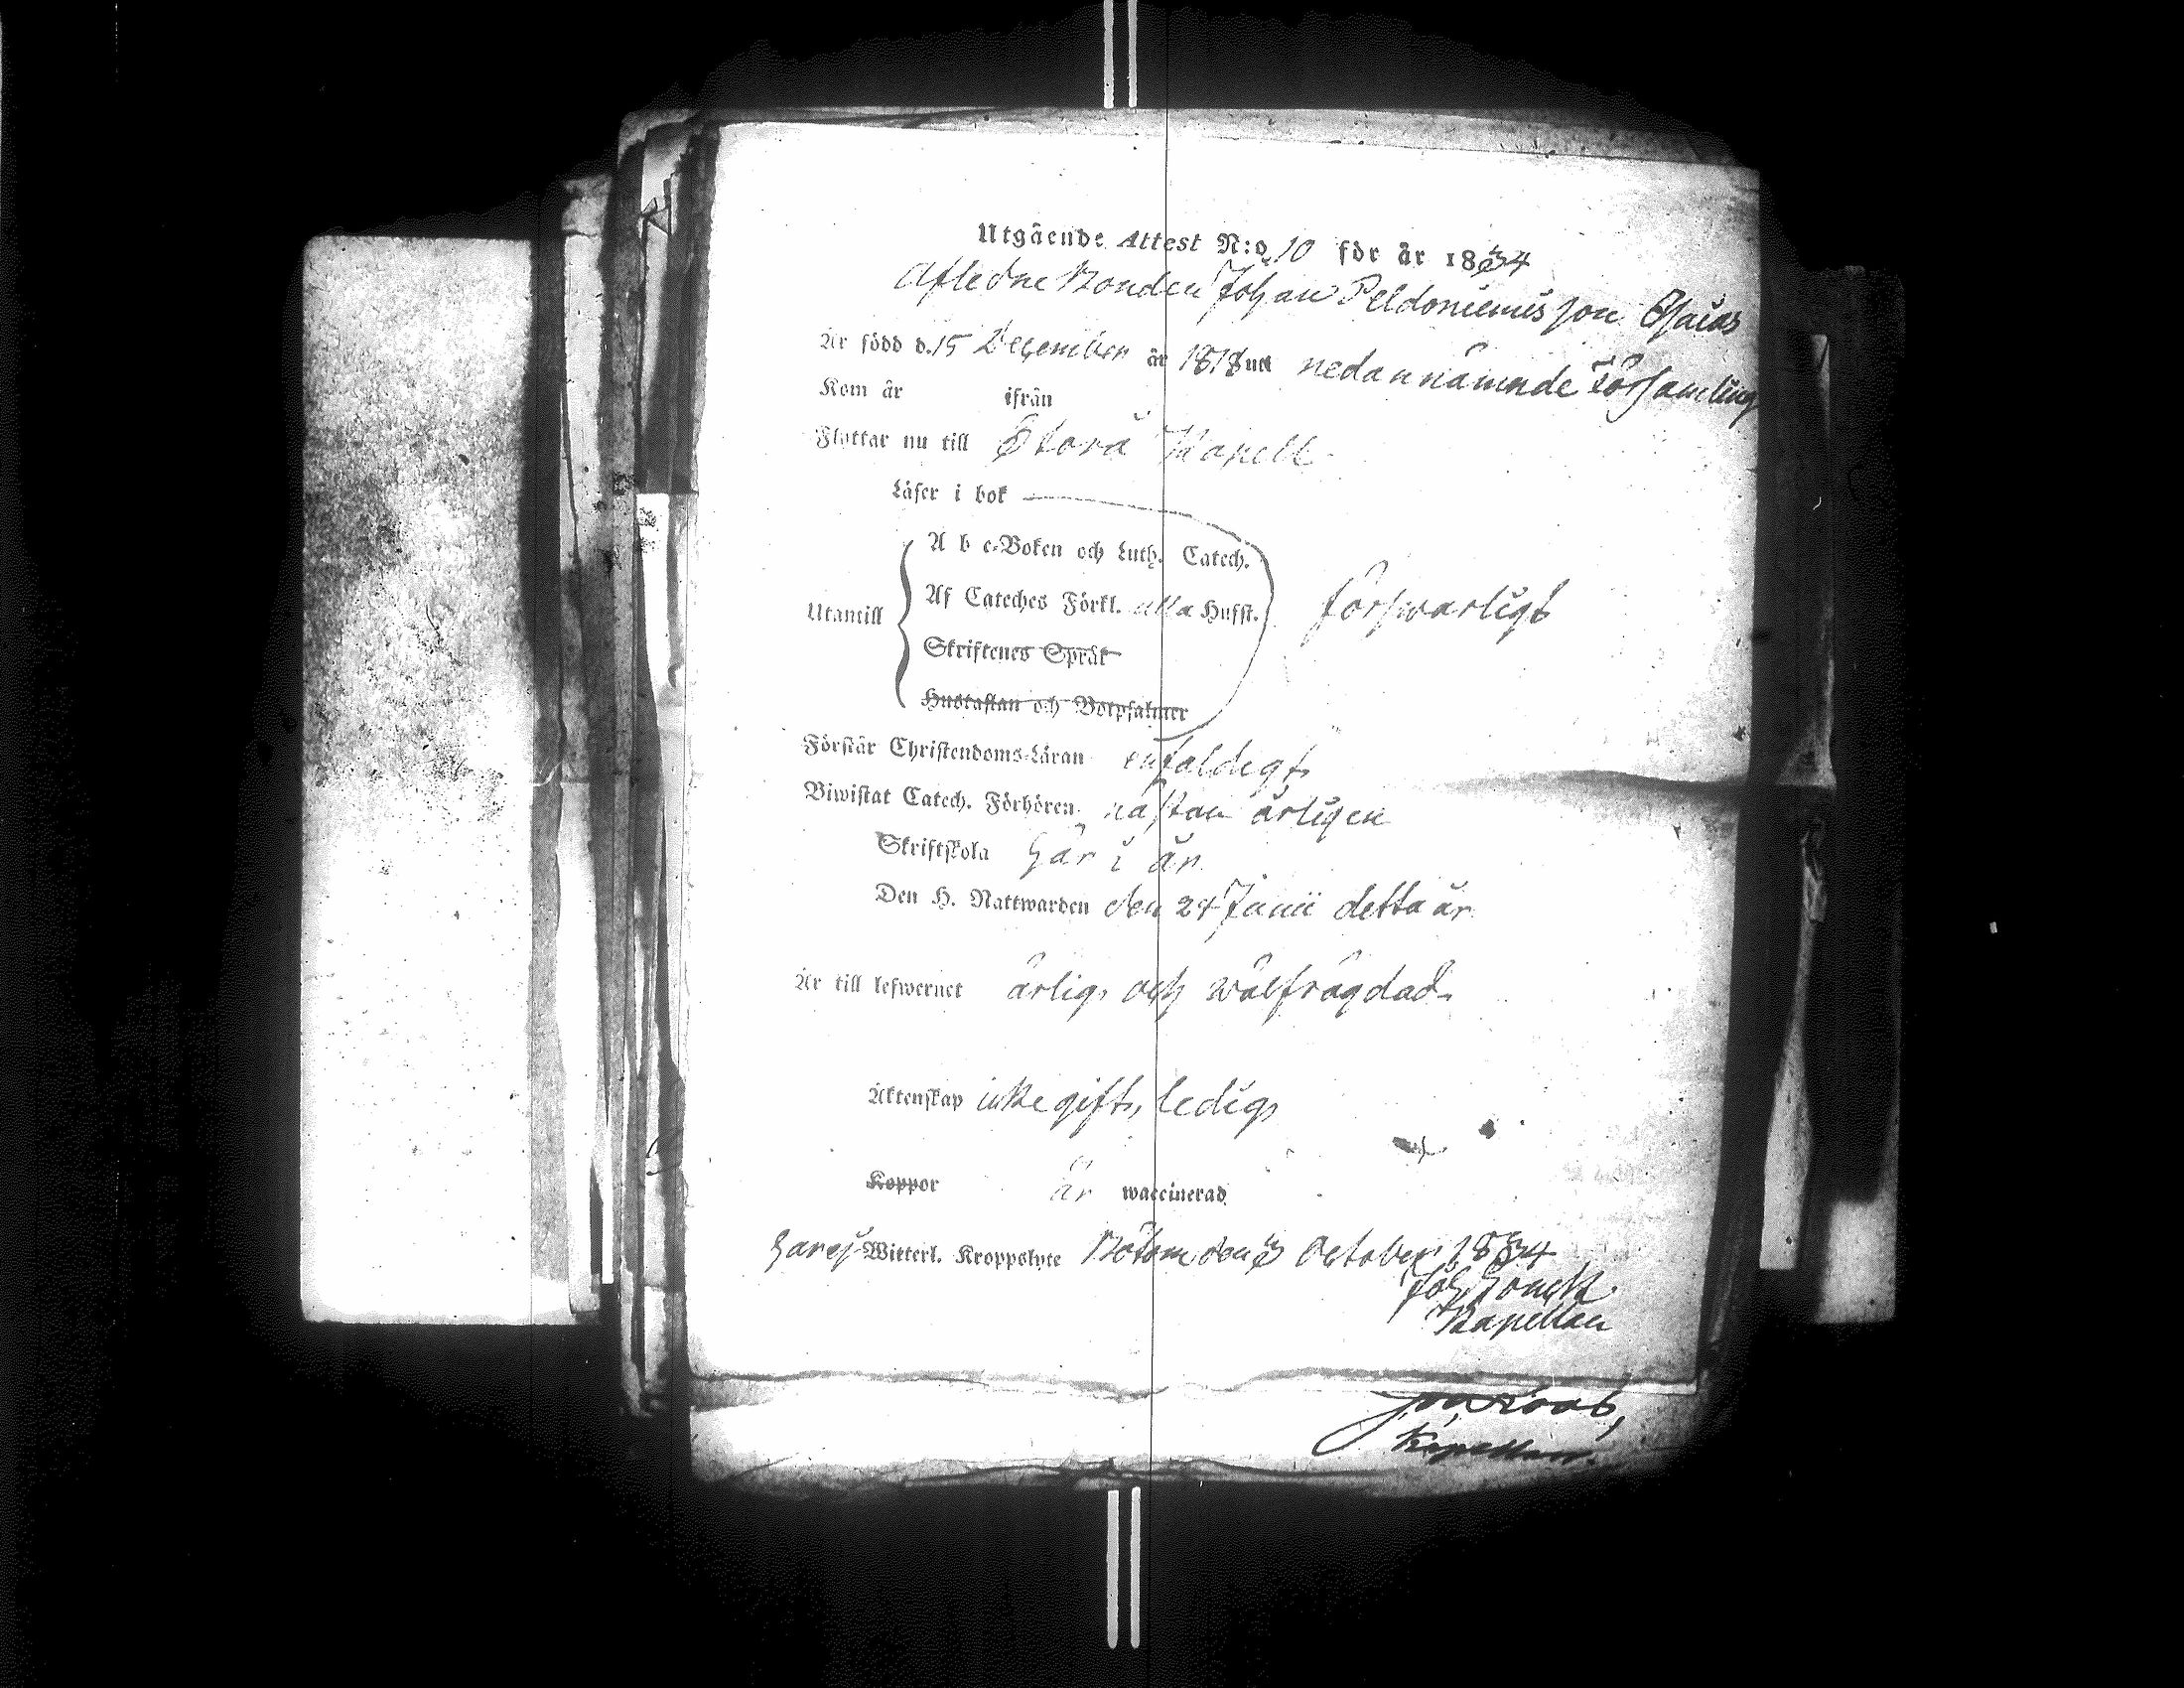 Utgående Attest N:o 10 för år 1834
Afledne Bonden Johan Peldoniemis son Esaias
Är född d. 15 December år 1818 uti nedannämnde Församling
Kom år ifrån
Flyttar nu till Storå Kapell
Läser i bok
A b c-Boken och Luth. Catech.
Utantill Af Cateches Förkl. alla Hufst. försvarligt
Skriftenes Språk
Hustaflan och Botpsalmer
Förstår Christendoms-Läran enfaldigt
Biwistat Catech. Förhören nästan årligen
Skriftskola här i år
Den H. Nattwarden den 24 Junii detta år
Är till lefwernet ärlig och wälfrägdad
Äktenskap icke gift, ledig
Koppor är waccinerad
har ej Witterl. Kroppslyte Bötom den 3 October 1834
Joh.
Kapellan
Kapellan.